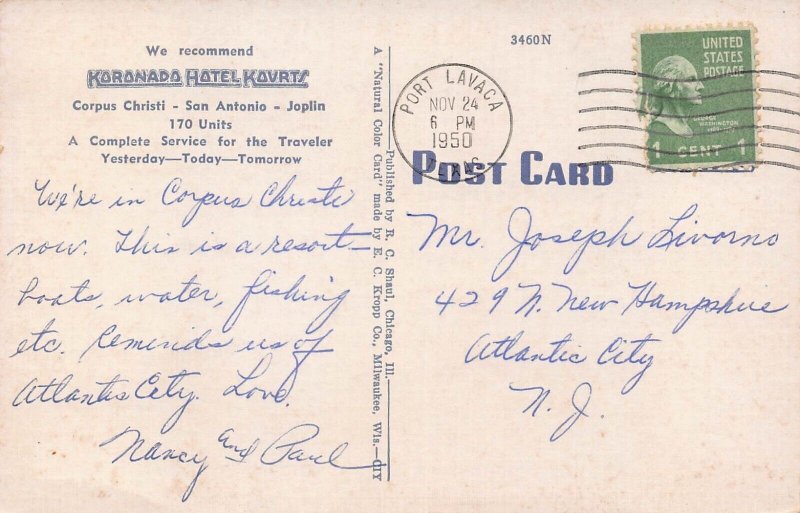 We recommend
KORONADO HOTEL KOURTS
Corpus Christi - San Antonio - Joplin
170 Units
A Complete Service for the Traveler
Yesterday—Today—Tomorrow
We're in Corpus Christi
now. This is a resort—
boats, water, fishing
etc. Reminds us of
Atlantic City. Love.
Nancy and Paul
A "Natural Color Card" made by E. C. Kropp Co., Milwaukee, Wis.—CIY
—Published by R. C. Shaul, Chicago, Ill.—
3460N
PORT LAVACA
NOV 24
6 PM
1950
TEXAS
UNITED
STATES
POSTAGE
GEORGE
WASHINGTON
1 CENT 1
POST CARD
Mr. Joseph Livorno
429 N. New Hampshire
Atlantic City
N. J.